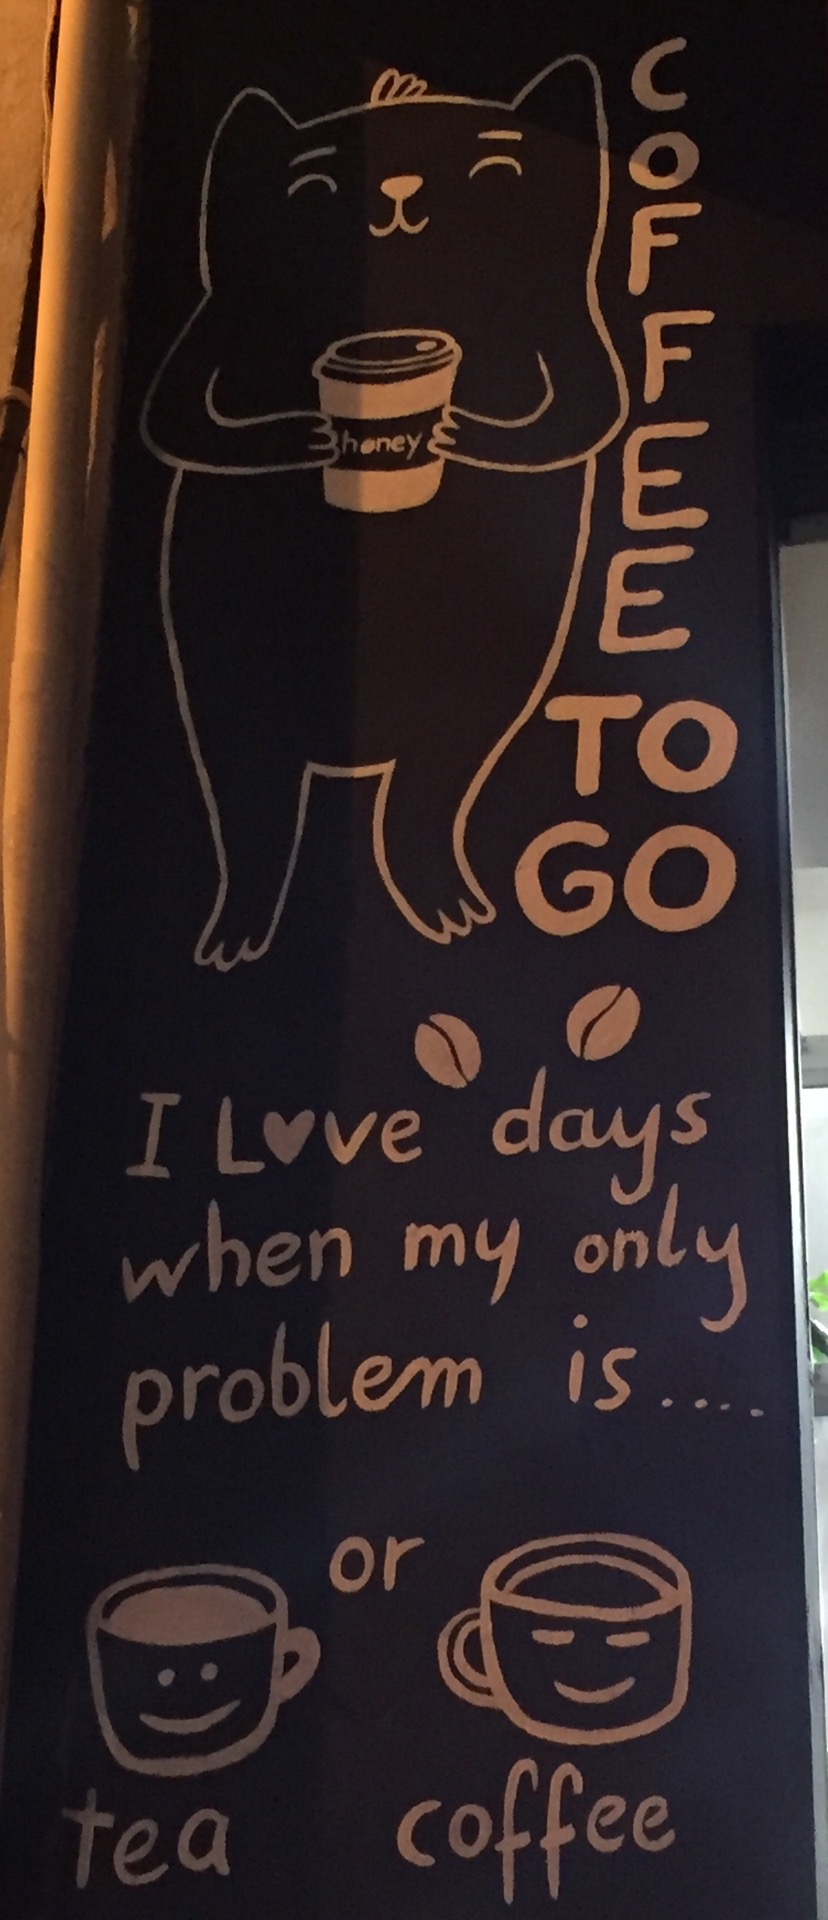 COFFEE
TO
GO
honey
I Love days
when my only
problem is....
or
tea coffee